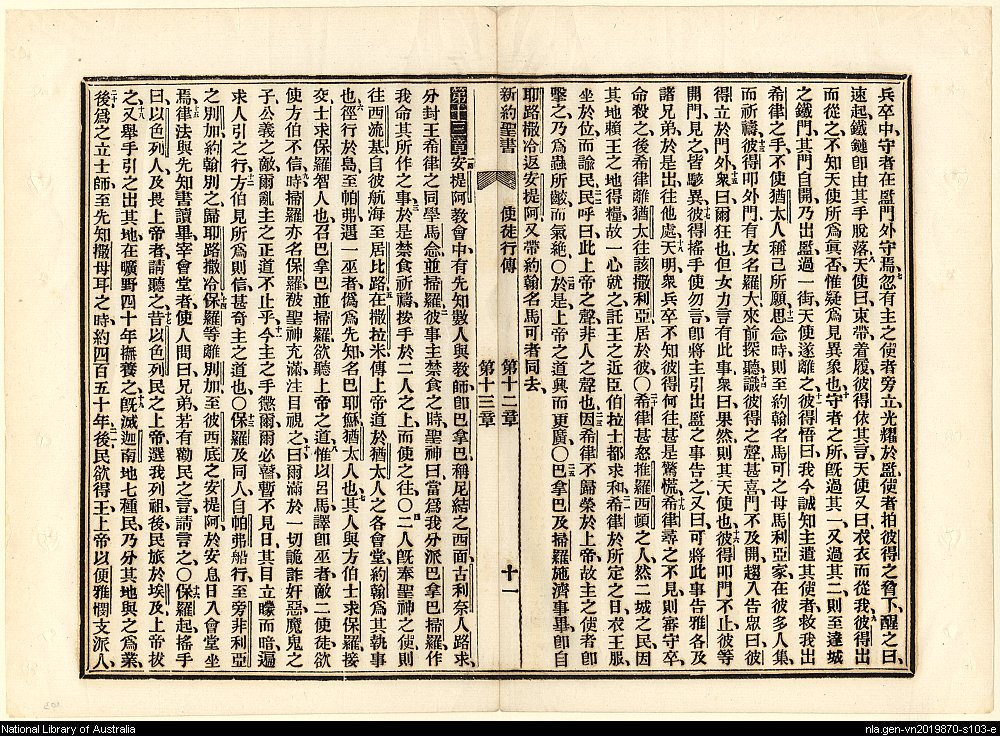 兵卒中、守者在監門外守焉、忽有主之使者旁立、光耀於監、使者拍彼得之脅下、醒之曰、
速起、鐵鏈卽由其手脫落、天使曰、束帶着履、彼得依其言、天使又曰、衣衣而從我、彼得出
而從之、不知天使所爲眞否、惟疑爲見異象也、守者之所旣過其一、又過其二、則至達城
之鐵門、其門自開、乃出監、過一街、天使遂離之、彼得悟曰、我今誠知主遣其使者、救我出
希律之手、不使猶太人稱己所願、思念時、則至約翰名馬可之母馬利亞家、在彼多人集
而祈禱、彼得叩外門、有女名羅大來前探聽、識彼得之聲、甚喜、門不及開、趨入告衆曰、彼
得立於門外、衆曰、爾狂也、但女力言有此事、衆曰、果然、則其天使也、彼得叩門不止、彼等
開門見之、皆駭異、彼得搖手使勿言、卽將主引出監之事告之、又曰、可將此事告雅各及
諸兄弟、於是出往他處、天明、衆兵卒不知彼得何往、甚是驚慌、希律尋之不見、則審守卒、
命殺之、後希律離猶太、往該撒利亞居於彼、〇希律甚怒推羅西頓之人、然二城之民、因
其地賴王之地得糧、故一心就之、託王之近臣伯拉士都求和、希律於所定之日、衣王服、
坐於位而諭民、民呼曰、此上帝之聲、非人之聲也、因希律不歸榮於上帝、故主之使者卽
擊之、乃爲蟲所嚙而氣絶、〇於是上帝之道興而更廣、〇巴拿巴及掃羅施濟事畢、卽自
耶路撒冷返安提阿、又帶約翰名馬可者同去、
新約聖書 使徒行傳 第十二章 十一
第十三章
第十三章 安提阿教會中、有先知數人與教師、卽巴拿巴、稱尼結之西面、古利奈人路求、
分封王希律之同學馬念、並掃羅、彼事主禁食之時、聖神曰、當爲我分派巴拿巴掃羅、作
我命其所作之事、於是禁食祈禱、按手於二人之上而使之往、〇二人旣奉聖神之使、則
往西流基、自彼航海至居比路、在撒拉米傳上帝道於猶太人之各會堂、約翰爲其執事
也、徑行於島、至帕弗、遇一巫者、僞爲先知、名巴耶穌、猶太人也、其人與方伯士求保羅接
交、士求保羅智人也、召巴拿巴並掃羅、欲聽上帝之道、惟以呂馬、譯卽巫者、敵二使徒、欲
使方伯不信、時掃羅亦名保羅、被聖神充滿、注目視之、曰、爾滿於一切詭詐奸惡、魔鬼之
子、公義之敵、爾亂主之正道不止乎、今主之手懲爾、爾必瞽、暫不見日、其目立矇而暗、遍
求人引之行、方伯見所爲則信、甚奇主之道也、〇保羅及同人自帕弗船行、至旁非利亞
之別加、約翰別之、歸耶路撒冷、保羅等離別加、至彼西底之安提阿、於安息日入會堂坐
焉、律法與先知書讀畢、宰會堂者、使人問曰、兄弟、若有勸民之言、請言之、〇保羅起、搖手
曰、以色列人、及畏上帝者、請聽之、昔以色列民之上帝、選我列祖、後民旅於埃及、上帝拔
之、又舉手引之出其地、在曠野四十年撫養之、旣滅迦南地七種民、乃分其地與之爲業、
後爲之立士師、至先知撒母耳之時、約四百五十年、後民欲得王、上帝以便雅憫支派人、
National Library of Australia
nla.gen-vn2019870-s103-e